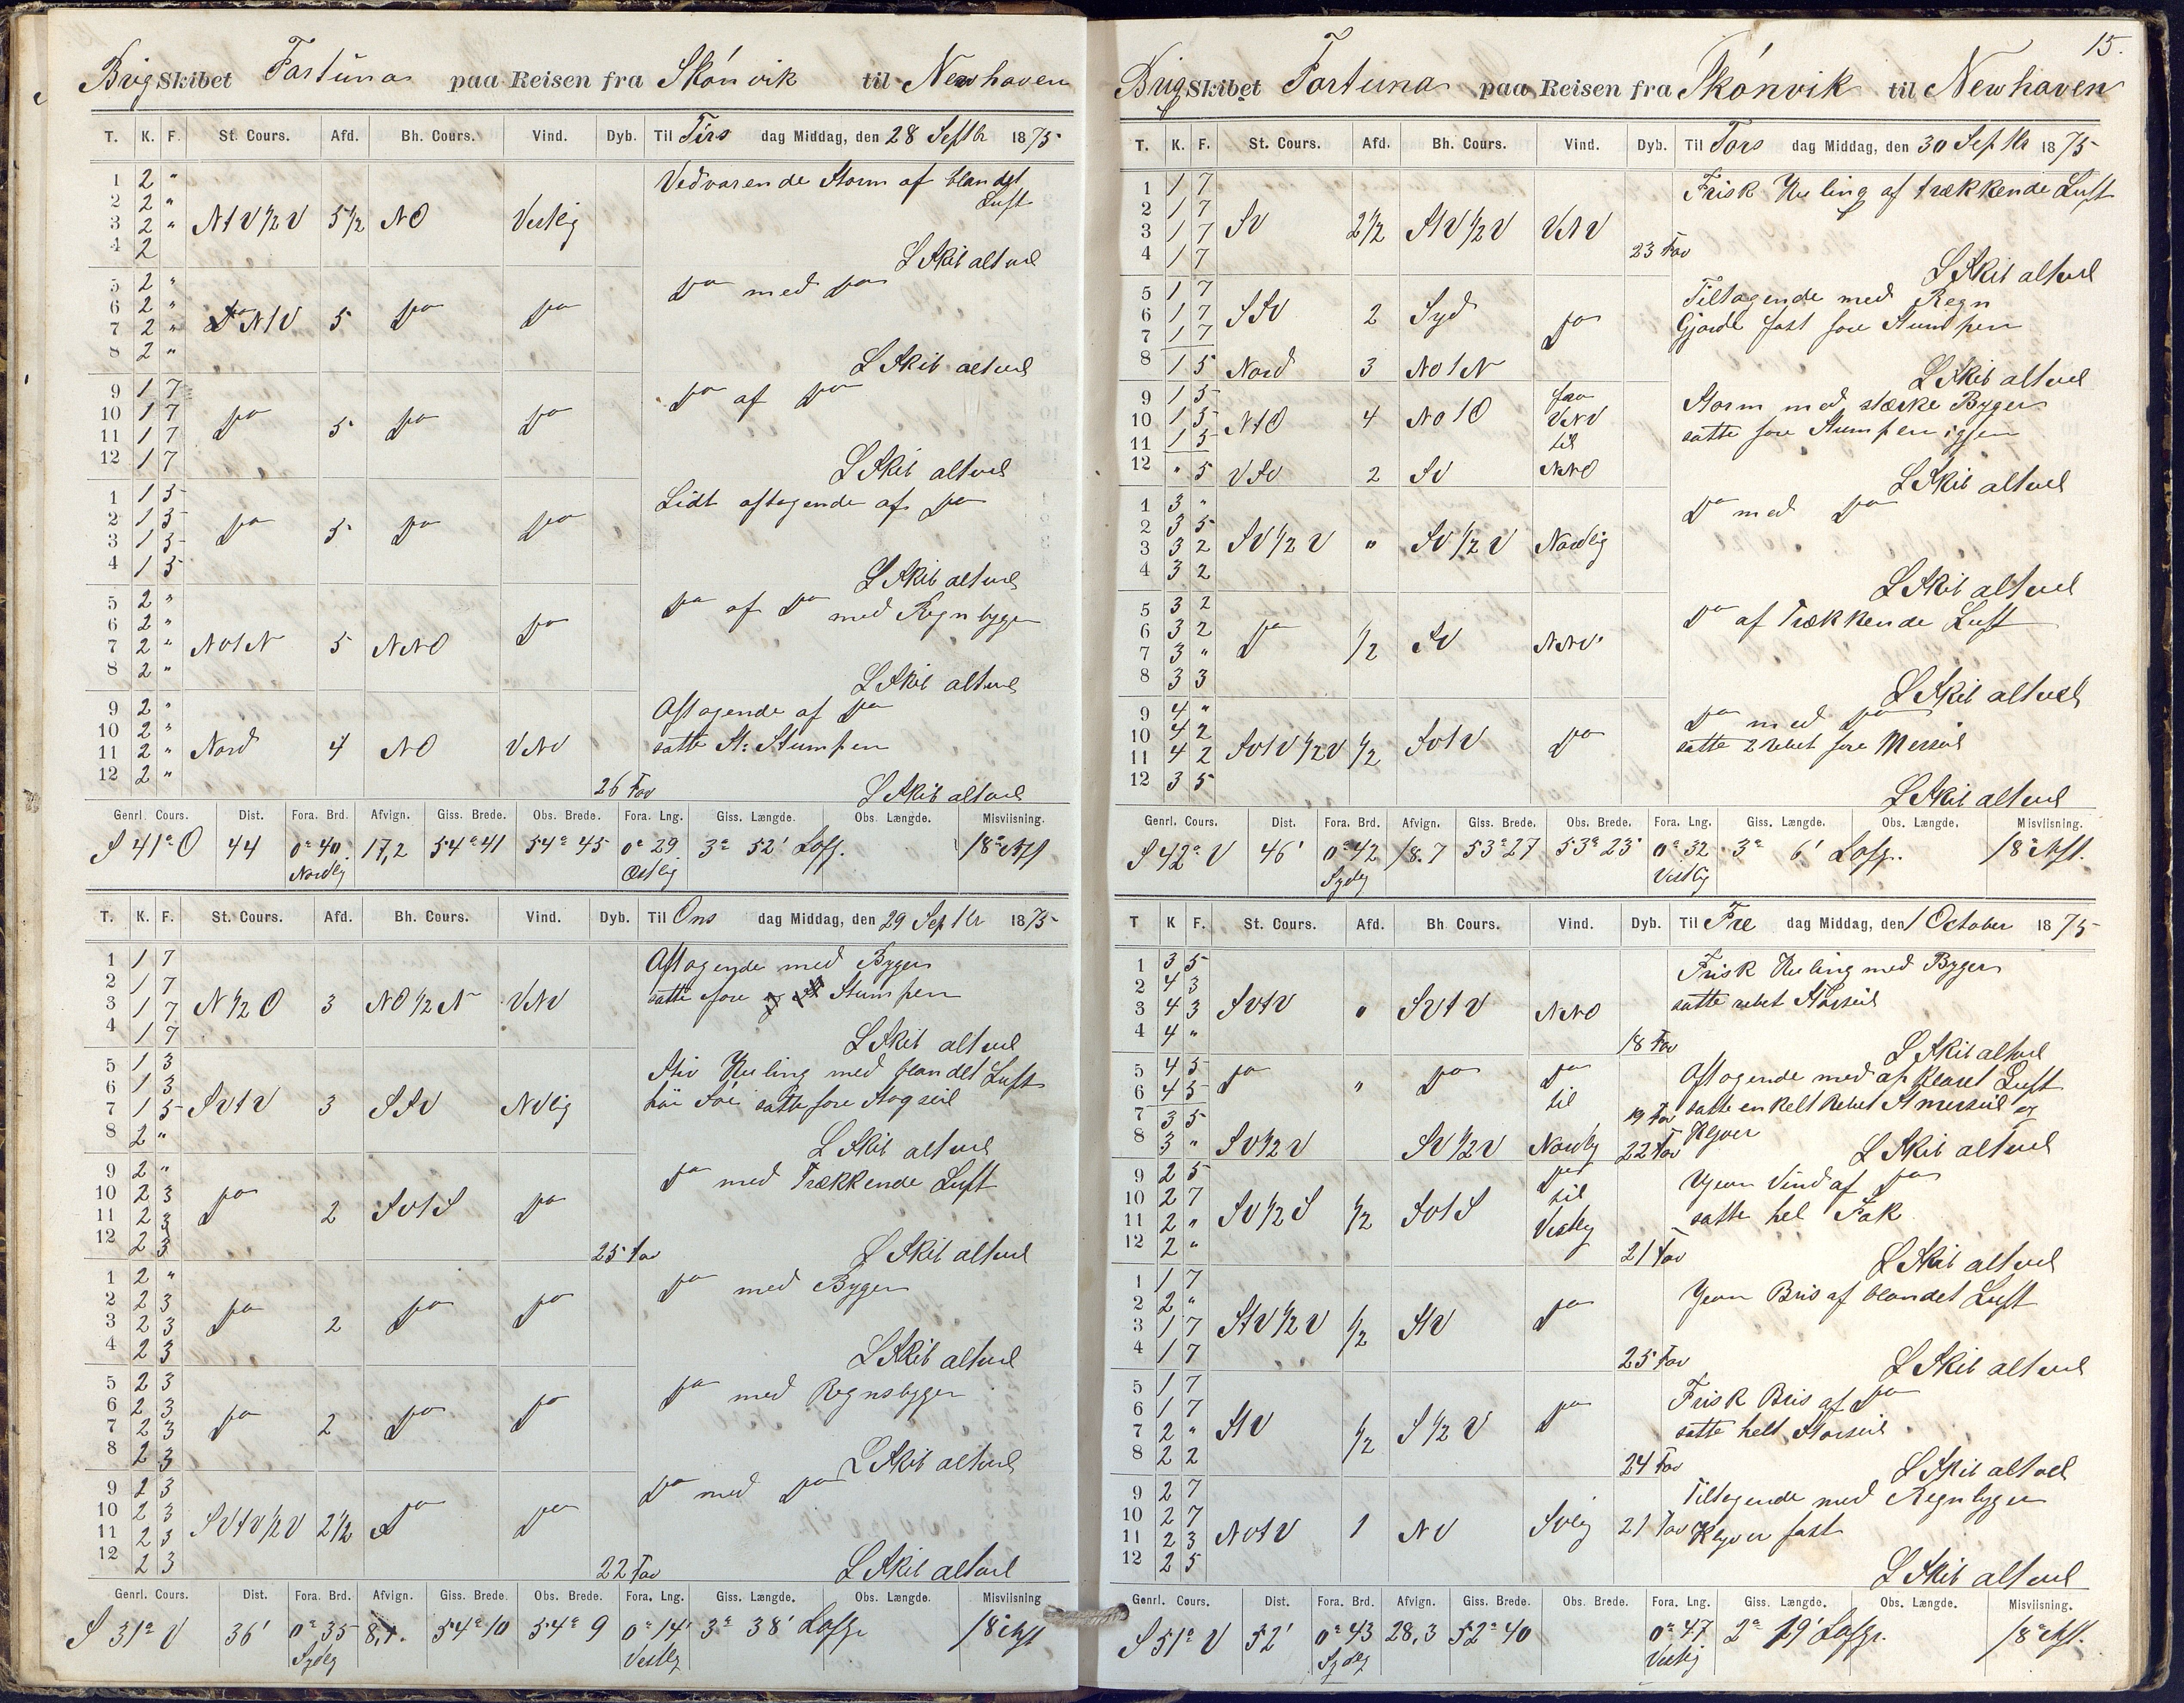 Brig Skibet Fortuna paa Reisen fra Skónvik til Newhaven
T. K. F. St. Cours. Afd. Bh. Cours. Vind. Dyb. Til Tirs dag Middag, den 28 Septbr 1875
1 2 " Vedvarende Storm af blandet
2 2 " Luft
3 2 " NtV½V 5½ NO Vestlig
4 2 L Skib altvel
5 2 " Do med Do
6 2 "
7 2 " NtV 5 Do Do
8 2 " L Skib altvel
9 1 7 Do af Do
10 1 7
11 1 7 Do 5 Do Do
12 1 7 L Skib altvel
1 1 5 Lidt aftagende af Do
2 1 5
3 1 5 Do 5 Do Do
4 1 5 L Skib altvel
5 2 " Do af Do med Regnbyger
6 2 "
7 2 " NOtN 5 NNO Do
8 2 " L Skib altvel
9 2 " Aftagende af Do
10 2 " satte St: Stumpen
11 2 " Nord 4 NO VNV
12 2 " 26 Fav L Skib altvel
Genrl. Cours. Dist. Fora. Brd. Afvign. Giss. Brede. Obs. Brede. Fora. Lng. Giss. Længde. Obs. Længde. Misviisning.
S 41° O 44 0° 40 17,2 54° 41 54° 45 0° 29 3° 52' 18°
Nordlig Østlig
T. K. F. St. Cours. Afd. Bh. Cours. Vind. Dyb. Til Ons dag Middag, den 29 Septbr 1875
1 1 7 Aftagende med Byger
2 1 7 satte fore Stumpen
3 1 7 N½O 3 NO½N VNV
4 1 7 L Skib altvel
5 1 3 Stiv Kuling med blandet Luft
6 1 3 satte fore Stagseil
7 1 5 SVtV 3 SSV NVlig
8 2 " L Skib altvel
9 2 " Do med Trækkende Luft
10 2 3
11 2 3 Do 2 SVtS Do
12 2 3 25 Fav L Skib altvel
1 2 " Do med Byger
2 2 3
3 2 3 Do 2 Do Do
4 2 3 L Skib altvel
5 2 3 Do med Regnsbyger
6 2 3
7 2 3 Do 2 Do Do
8 2 3 L Skib altvel
9 2 3 Do med Do
10 2 3
11 2 3 SVtV½V 2½ Do Do
12 2 3 22 Fav L Skib altvel
Genrl. Cours. Dist. Fora. Brd. Afvign. Giss. Brede. Obs. Brede. Fora. Lng. Giss. Længde. Obs. Længde. Misviisning
S 31° V 36' 0° 35 54° 10 54° 9 0° 14' 3° 38' 18°
Sydlig Vestlig
15.
Brig Skibet Fortuna paa Reisen fra Skónvik til Newhaven
T. K. F. St. Cours. Afd. Bh. Cours. Vind. Dyb. Til Tors dag Middag, den 30 Septbr 1875
1 1 7 Frisk Kuling af trækkende Luft
2 1 7
3 1 7 SV 2½ StV½V VNV
4 1 7 23 Fav L Skib altvel
5 1 7 Tiltagende med Regn
6 1 7 SSV 2 Syd Do Gjorde fast fore Stumpen
7 1 7
8 1 5 Nord 3 NOtN L Skib altvel
9 1 5 fra Storm med stærke Byger
10 1 5 NtO 4 NOtO VNV satte fore Stumpen igjen
11 1 5 til
12 " 5 VSV 2 SV NNO L Skib altvel
1 3 " Do med Do
2 3 5
3 3 2 SV½V " SV½V Nordlig
4 3 2 L Skib altvel
5 3 2 Do af Trækkende Luft
6 3 2
7 3 " Do ½ SV NNV
8 3 3 L Skib altvel
9 4 " Do med Do
10 4 2 satte 2 rebet fore Merseil
11 4 2 SVtV½V ½ SVtV Do
12 3 5 L Skib altvel
Genrl. Cours. Dist. Fora. Brd. Afvign. Giss. Brede. Obs. Brede. Fora. Lng. Giss. Længde. Obs. Længde. Misviisning.
S 42° V 46' 0° 42 18.7 53° 27 53° 23 0° 32 3° 6' 18°
Sydlig Vestlig
T K F. St. Cours. Afd. Bh Cours. Vind. Dyb. Til Fre dag Middag, den 1 October 1875
1 3 5 Frisk Kuling med Byger
2 4 3 satte rebet Storseil
3 4 3 SVtV " SVtV NNO
4 4 " 18 Fav L Skib altvel
5 4 5 Do " Do Do Aftagende med af klaret Luft
6 4 5 til
7 3 5 19 Fav satte enkelt Rebet St merseil og
8 3 " SV½V SV½V Nordlig 22 Fav Klyver L Skib altvel
9 2 5 Do Vind af Do
10 2 7 til satte hel Fok
11 2 " SV½S ½ SVtS Vestlig
12 2 " 21 Fav L Skib altvel
1 1 7 Jevn Bris af blandet Luft
2 2 "
3 1 7 StV½V ½ StV Do
4 1 7 25 Fav L Skib altvel
5 1 7 Frisk Bris af Do
6 1 7 satte helt Storseil
7 2 " StV ½ S½V Do
8 2 2 24 Fav L Skib altvel
9 2 7 Tiltagende med Regnbyger
10 2 7
11 2 3 NVtV 1 NV SVlig 21 Fav Klyver fast
12 2 5 L Skib altvel
Genrl. Cours. Dist. Fora. Brd. Afvign. Giss. Brede. Obs. Brede. Fora. Lng. Giss. Længde. Obs. Længde. Misviisning.
S 51° V 52' 0° 43 28,3 52° 40 0° 47 2° 19' 18°
Sydlig Vestlig